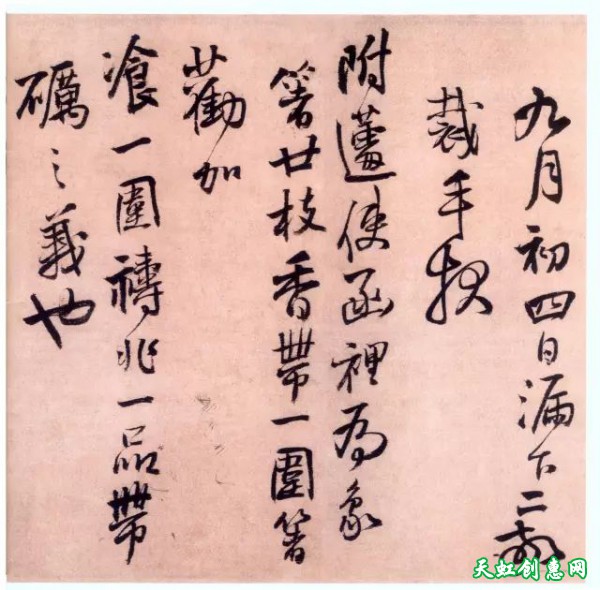 九月初四日漏下二鼓
裁手
附蘧使函裡為象
箸廿枝香帶一圍箸
以勸加
飡一圍禱兆一品帶
礪之義也
天虹创惠网